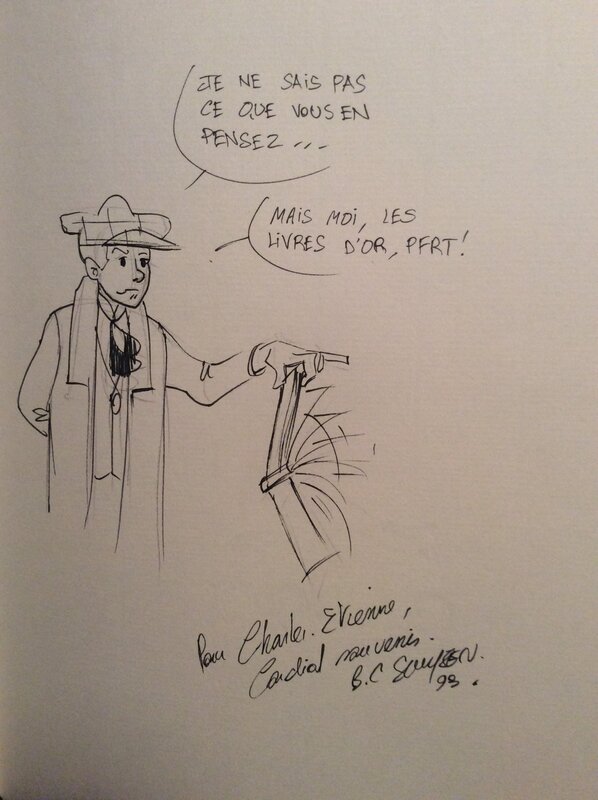 JE NE SAIS PAS
CE QUE VOUS EN
PENSEZ ...
MAIS MOI, LES
LIVRES D'OR, PFRT!
Pour Charles. Etienne,
Cordial souvenir.
B.C
93.